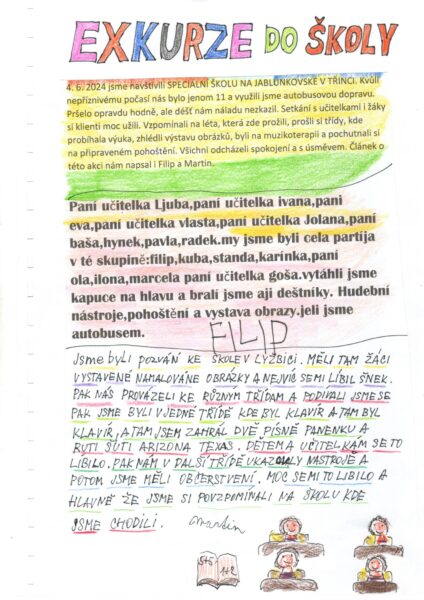 EXKURZE DO ŠKOLY
4. 6. 2024 jsme navštívili SPECIÁLNÍ ŠKOLU NA JABLUŇKOVSKÉ V TŘINCI. Kvůli
nepříznivému počasí nás bylo jenom 11 a využili jsme autobusovou dopravu.
Pršelo opravdu hodně, ale déšť nám náladu nezkazil. Setkání s učitelkami i žáky
si klienti moc užili. Vzpomínali na léta, která zde prožili, prošli si třídy, kde
probíhala výuka, zhlédli výstavu obrázků, byli na muzikoterapii a pochutnali si
na připraveném pohoštění. Všichni odcházeli spokojení a s úsměvem. Článek o
této akci nám napsal i Filip a Martin.
Paní učitelka Ljuba,paní učitelka ivana,pani
eva,paní učitelka vlasta,paní učitelka Jolana,paní
baša,hynek,pavla,radek.my jsme byli cela partija
v té skupině:filip,kuba,standa,karínka,paní
ola,ilona,marcela paní učitelka goša.vytáhli jsme
kapuce na hlavu a bralí jsme aji deštníky. Hudební
nástroje,pohoštění a vystava obrazy.jeli jsme
autobusem.
FILIP
JSME BYLI POZVÁN KE ŠKOLE V LYŽBICI. MĚLI TAM ŽÁCI
VYSTAVENÉ NAMALOVÁNE OBRÁZKY A NEJVÍC SEMI LÍBIL ŠNEK.
PAK NÁS PROVÁZELI KE RŮZNÝM TŘÍDAM A PODIVALI JSME SE
PAK JSME BYLI V JEDNÉ TŘÍDĚ KDE BYL KLAVÍR A TAM BYL
KLAVÍR, A TAM JSEM ZAHRÁL DVĚ PÍSNĚ PANENKU A
RUTI ŠUTI ARIZONA TEXAS. DĚTEM A UČITELKÁM SE TO
LÍBILO. PAK NÁM V DALŠÍ TŘÍDĚ UKAZOVALY NÁSTROJE A
POTOM JSME MĚLI OBČERSTVENÍ. MOC SEMI TO LÍBILO A
HLAVNĚ ŽE JSME SI POVZPOMÍNALI NA ŠKOLU KDE
JSME CHODILI. Martin
5+5 1+2